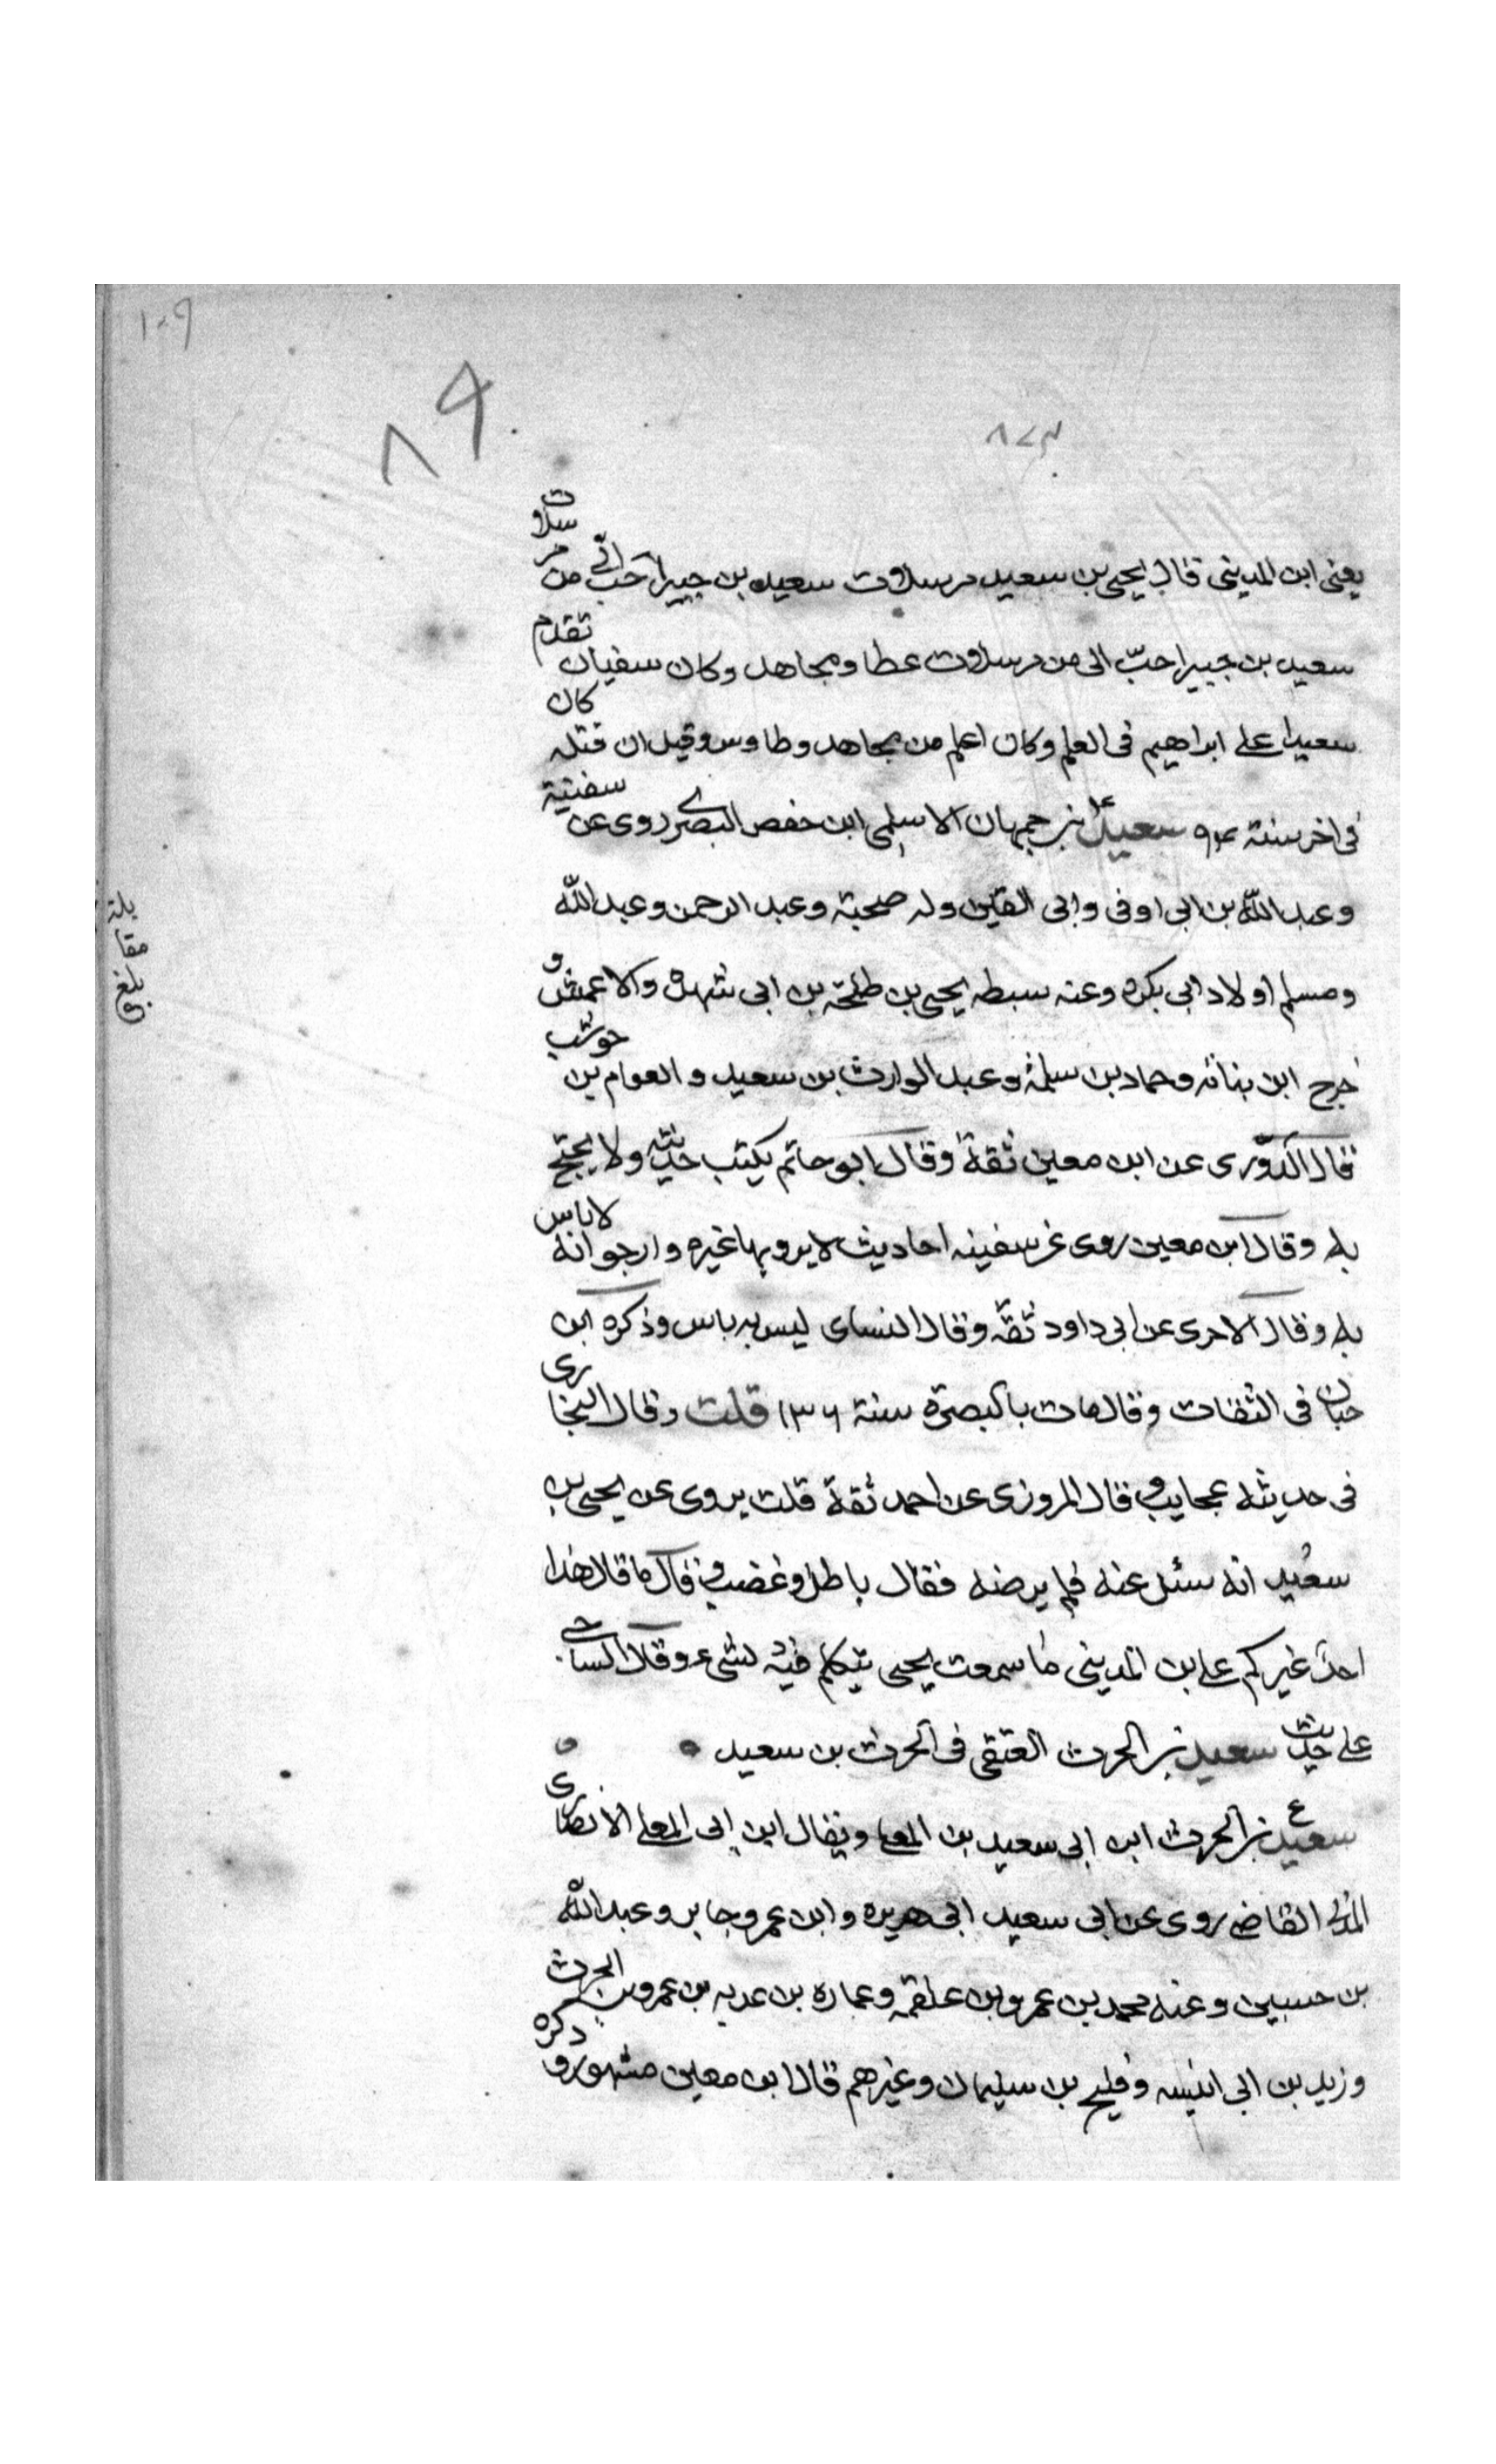 ١٠٩
٨٩
٨٧٣
يعنى ابن المدينى قال يحيى بن سعيد مرسلات سعيد بن جبير احب الّى من مرسلات
سعيد بن جبير احبّ الى من مرسلات عطا ومجاهد وكان سفيان تقدم
سعيدا على ابراهيم فى العلم وكان اعلم من مجاهد وطاوس وقيل ان قتله كان
فى اخر سنة ٩٤ سعيد بن جمهان الاسلمى ابن حفص البصرى روى عن سفنية
وعبد اللّه بن ابى اوفى وابى القين وله صحبة وعبد الرحمن وعبد اللّه
ومسلم اولاد ابى بكره وعنه سبطه يحيى بن طلحة بن ابى شهدة والاعمش و
خرج ابن بناته وحماد بن سلمة وعبد الوارث بن سعيد والعوام بن حوشب
قال الدّورى عن ابن معين ثقة وقال ابو حاتم يكتب حديثه ولا يحتج
به وقال ابن معين روى عن سفينه احاديث لا يرويها غيره وارجو انه لا باس
به وقال الاجرى عن ابى داود ثقة وقال النساى ليس به باس وذكره ابن
حبان فى الثقات وقال مات بالبصرة سنة ١٣٦ قلت وقال البخارى
فى حديثه عجايب وقال المروزى عن احمد ثقة قلت يروى عن يحيى بن
سعيد انه سئل عنه فلم يرضه فقال باطل وغضب وقال ما قال هذا
احد غير كم على بن المدينى ما سمعت يحيى يتكلم فيه بشىء وقال الساجى
على حديث سعيد بن الحرث العتقى فى الحرث بن سعيد
سعيد بن الحرث ابن ابى سعيد بن المعلى ويقال ابن ابى المعلى الانصارى
المدنى القاضى روى عن ابى سعيد ابى هريره وابن عمر وجابر وعبد اللّه
بن حسين وعنه محمد بن عمرو بن علقمه وعماره بن عديه بن عمرو بن الحرث
وزيد بن ابى انيسه وفليح بن سليمان وغيرهم قال ابن معين مشهور و ذكره
بلغ
مقا
بلة